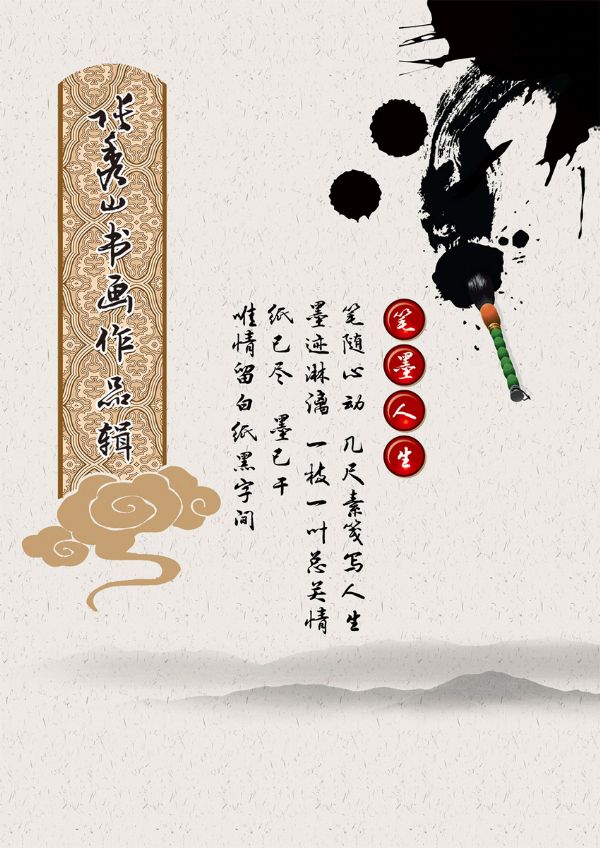 笔墨人生
笔随心动 几尺素笺写人生
墨迹淋漓 一枝一叶总关情
纸已尽 墨已干
唯情留白纸黑字间
张秀山书画作品辑